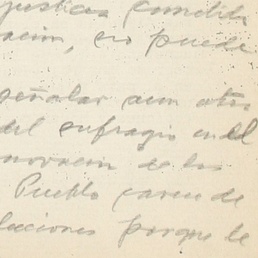 justicia cometida
ación, no puede
señalar aun otro
del sufragio en el
de los
Pueblo carece de
lecciones porque le